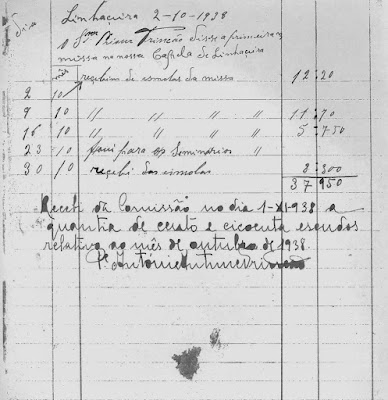 Linhaceira 2-10-1938
O Snr Prior Trincão disse a primeira
missa na nossa Capela de Linhaceira
dia mês
2 10 recebimo de esmolas da missa 12:20
9 10 〃 〃 〃 〃 11:70
16 10 〃 〃 〃 〃 5:750
23 10 para os Seminários 〃
30 10 recebi das esmolas 8:300
37 950
Recebi da Comissão no dia 1-XI-938 a
quantia de cento e cicoenta escudos
relativa ao mês de outubro de 1938.
P. António